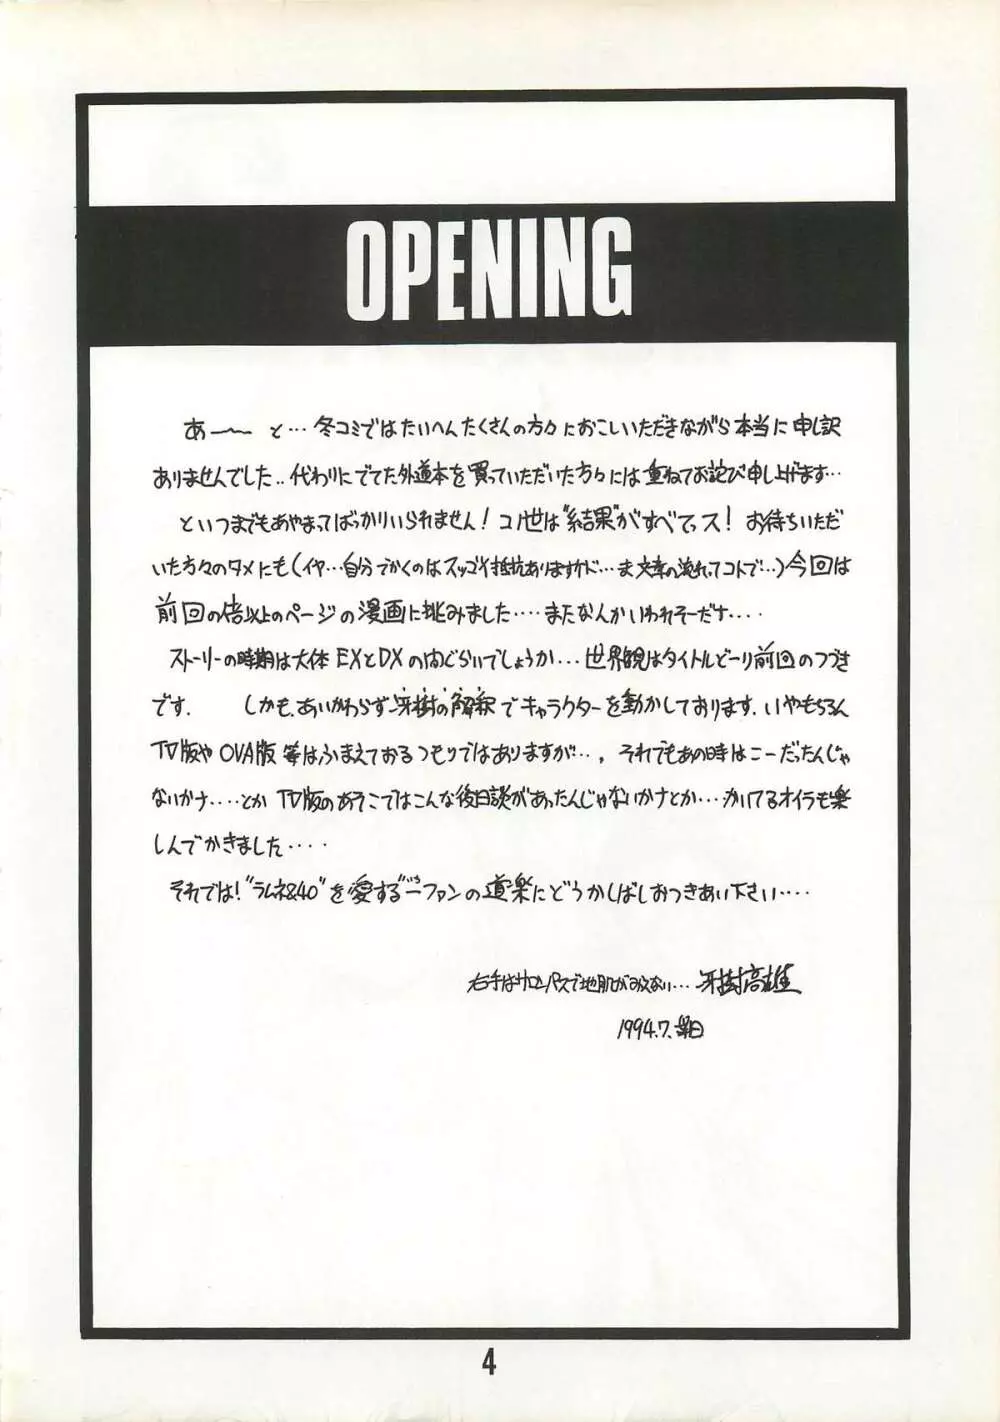 OPENING
あ〜〜と…冬コミではたいへんたくさんの方々におこしいただきながら本当に申し訳
ありませんでした..代わりにでてた外道本を買っていただいた方々には重ねてお詫び申し上げます…
といつまでもあやまってばっかりいられません!コノ世は"結果"がすべてっス!お待ちいただ
いた方々のタメにも(イヤ…自分でかくのはスッゴイ抵抗ありますけド…ま文章の流れってコトで…)今回は
前回の倍以上のページの漫画に挑みました‥‥またなんかいわれそーだナ‥‥
ストーリーの時期は大体EXとDXの間ぐらいでしょうか…世界観はタイトルどーり前回のつづき
です. しかも、あいかわらず牙樹の解釈でキャラクターを動かしております.いやもちろん
TV版やOVA版等はふまえておるつもりではありますが…,それでもあの時はこーだったんじゃ
ないかナ‥‥とかTV版のあそこではこんな後日談があったんじゃないかナとか…かいてるオイラも楽
しんでかきました‥‥
それでは!"ラムネ&40"を愛する一ファンの道楽にどうかしばしおつきあい下さい‥‥
右手はサロンパスで地肌がみえない…牙樹高雄
1994.7.
4